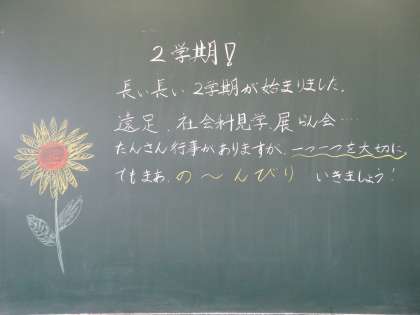 2学期!
長い長い2学期が始まりました。
遠足、社会科見学、展らん会‥‥
たんさん行事がありますが、一つ一つを大切に。
でもまあ、の〜んびり いきましょう!